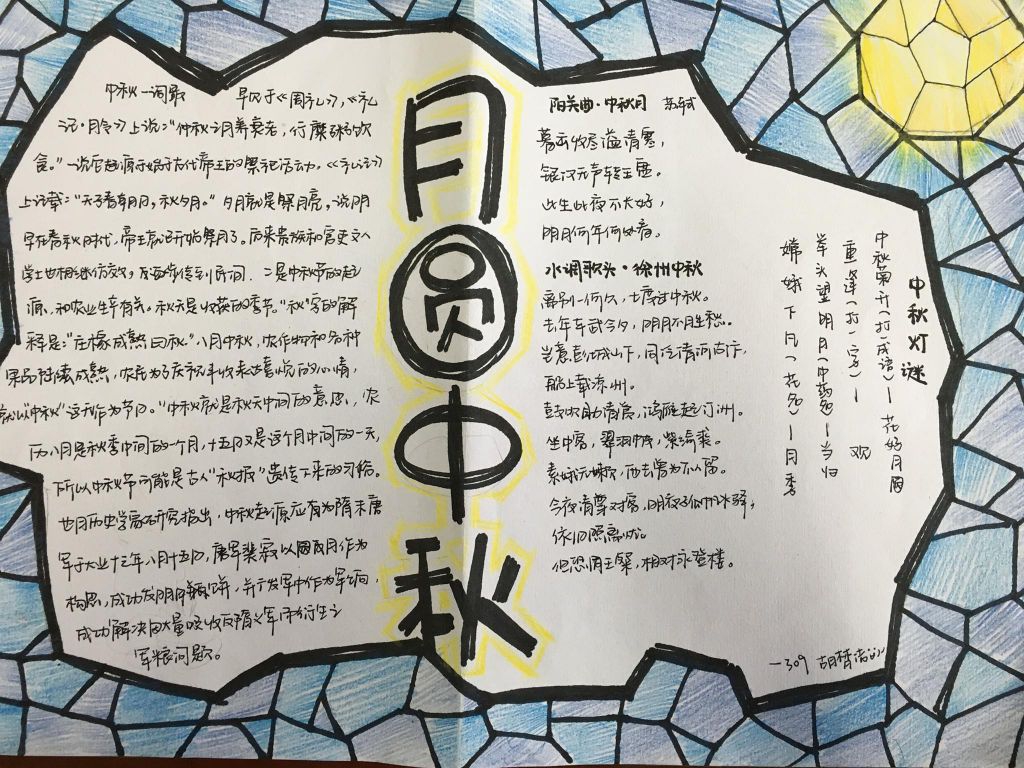 中秋一词最早见于《周礼》,《礼
记·月令》上说:"仲秋之月养衰老,行糜粥饮
食。"一说它起源于古代帝王的祭祀活动。《礼记》
上记载:"天子春朝日,秋夕月。"夕月就是祭月亮,说明
早在春秋时代,帝王就已开始祭月了。后来贵族和官吏文人
学士也相继仿效,逐步传到民间。二是中秋节的起
源,和农业生产有关。秋天是收获的季节。"秋"字的解
释是:"庄稼成熟曰秋"。八月中秋,农作物和各种
果品陆续成熟,农民为了庆祝丰收表达喜悦的心情,
就以"中秋"这天作为节日。"中秋"就是秋天中间的意思,农
历八月是秋季中间的一个月,十五日又是这个月中间的一天,
所以中秋节可能是古人"秋报"遗传下来的习俗。
也有历史学家研究指出,中秋起源应为隋末唐
军于大业十三年八月十五日,唐军裴寂以圆月作为
构思,成功发明月饼,并广发军中作为军饷,
成功解决因大量吸收反隋义军而衍生之
军粮问题。
月圆中秋
阳关曲·中秋月 苏轼
暮云收尽溢清寒,
银汉无声转玉盘。
此生此夜不长好,
明月何年何处看。
水调歌头·徐州中秋
离别一何久,七度过中秋。
去年东武今夕,明月不胜愁。
岂意彭城山下,同泛清河古汴,
船上载凉州。
鼓吹助清赏,鸿雁起汀洲。
坐中客,翠羽帔,紫绮裘。
素娥无赖,西去曾不为留。
今夜清尊对客,明夜孤帆水驿,
依旧照离忧。
但恐同王粲,相对永登楼。
中秋灯谜
中秋菊开(打一成语)— 花好月圆
重逢(打一字)— 观
举头望明月(中药名)— 当归
嫦娥下凡(花名)— 月季
—309 胡梦